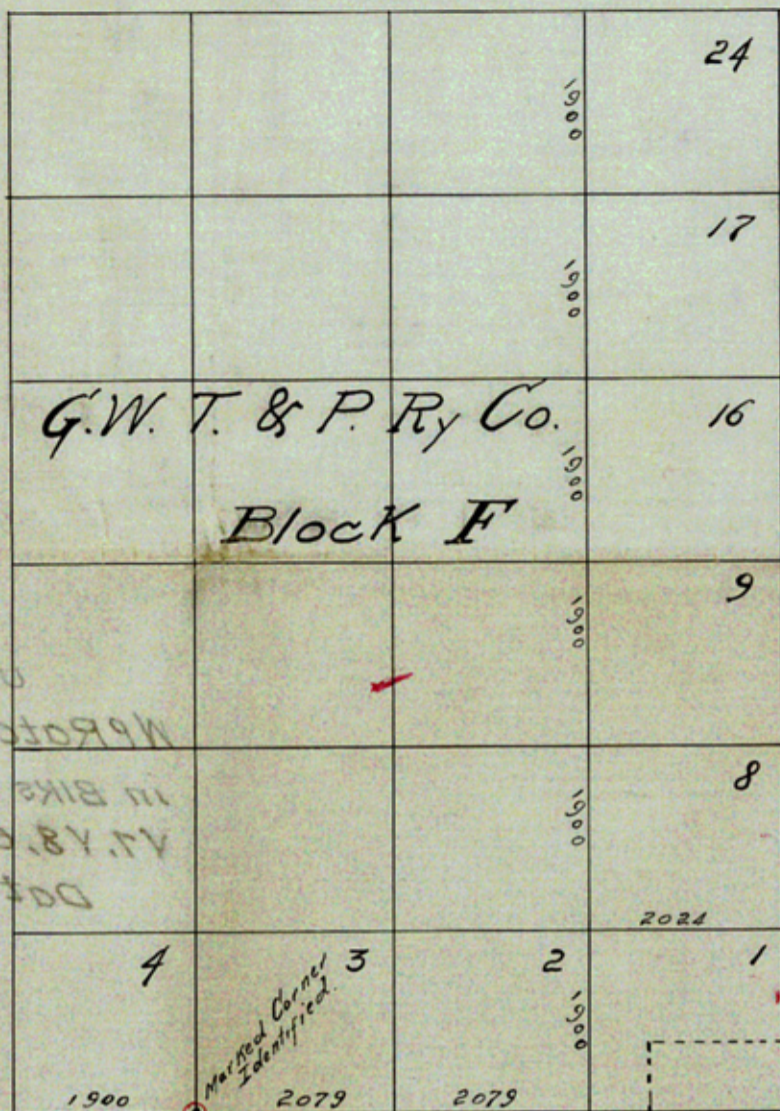 24
1900
17
1900
G.W. T. & P. Ry Co.
16
1900
Block F
9
1900
8
1900
2024
4
3
2
1
Marked Corner
Identified.
1900
1900
2079
2079